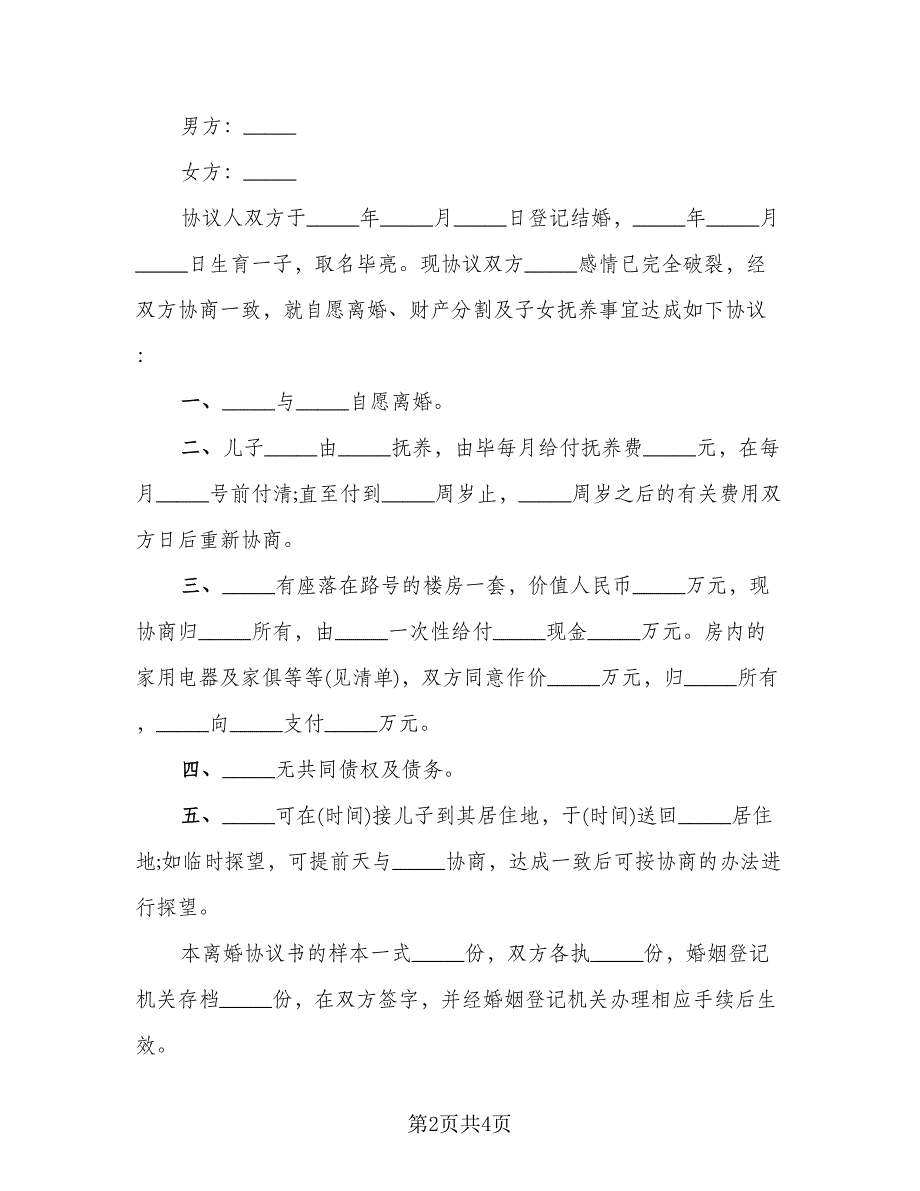 男方：_____
女方：_____
协议人双方于_____年_____月_____日登记结婚，_____年_____月
_____日生育一子，取名毕亮。现协议双方_____感情已完全破裂，经
双方协商一致，就自愿离婚、财产分割及子女抚养事宜达成如下协议
：
一、_____与_____自愿离婚。
二、儿子_____由_____抚养，由毕每月给付抚养费_____元，在每
月_____号前付清;直至付到_____周岁止，_____周岁之后的有关费用双
方日后重新协商。
三、_____有座落在路号的楼房一套，价值人民币_____万元，现
协商归_____所有，由_____一次性给付_____现金_____万元。房内的
家用电器及家俱等等(见清单)，双方同意作价_____万元，归_____所有
，_____向_____支付_____万元。
四、_____无共同债权及债务。
五、_____可在(时间)接儿子到其居住地，于(时间)送回_____居住
地;如临时探望，可提前天与_____协商，达成一致后可按协商的办法进
行探望。
本离婚协议书的样本一式_____份，双方各执_____份，婚姻登记
机关存档_____份，在双方签字，并经婚姻登记机关办理相应手续后生
效。
第2页共4页